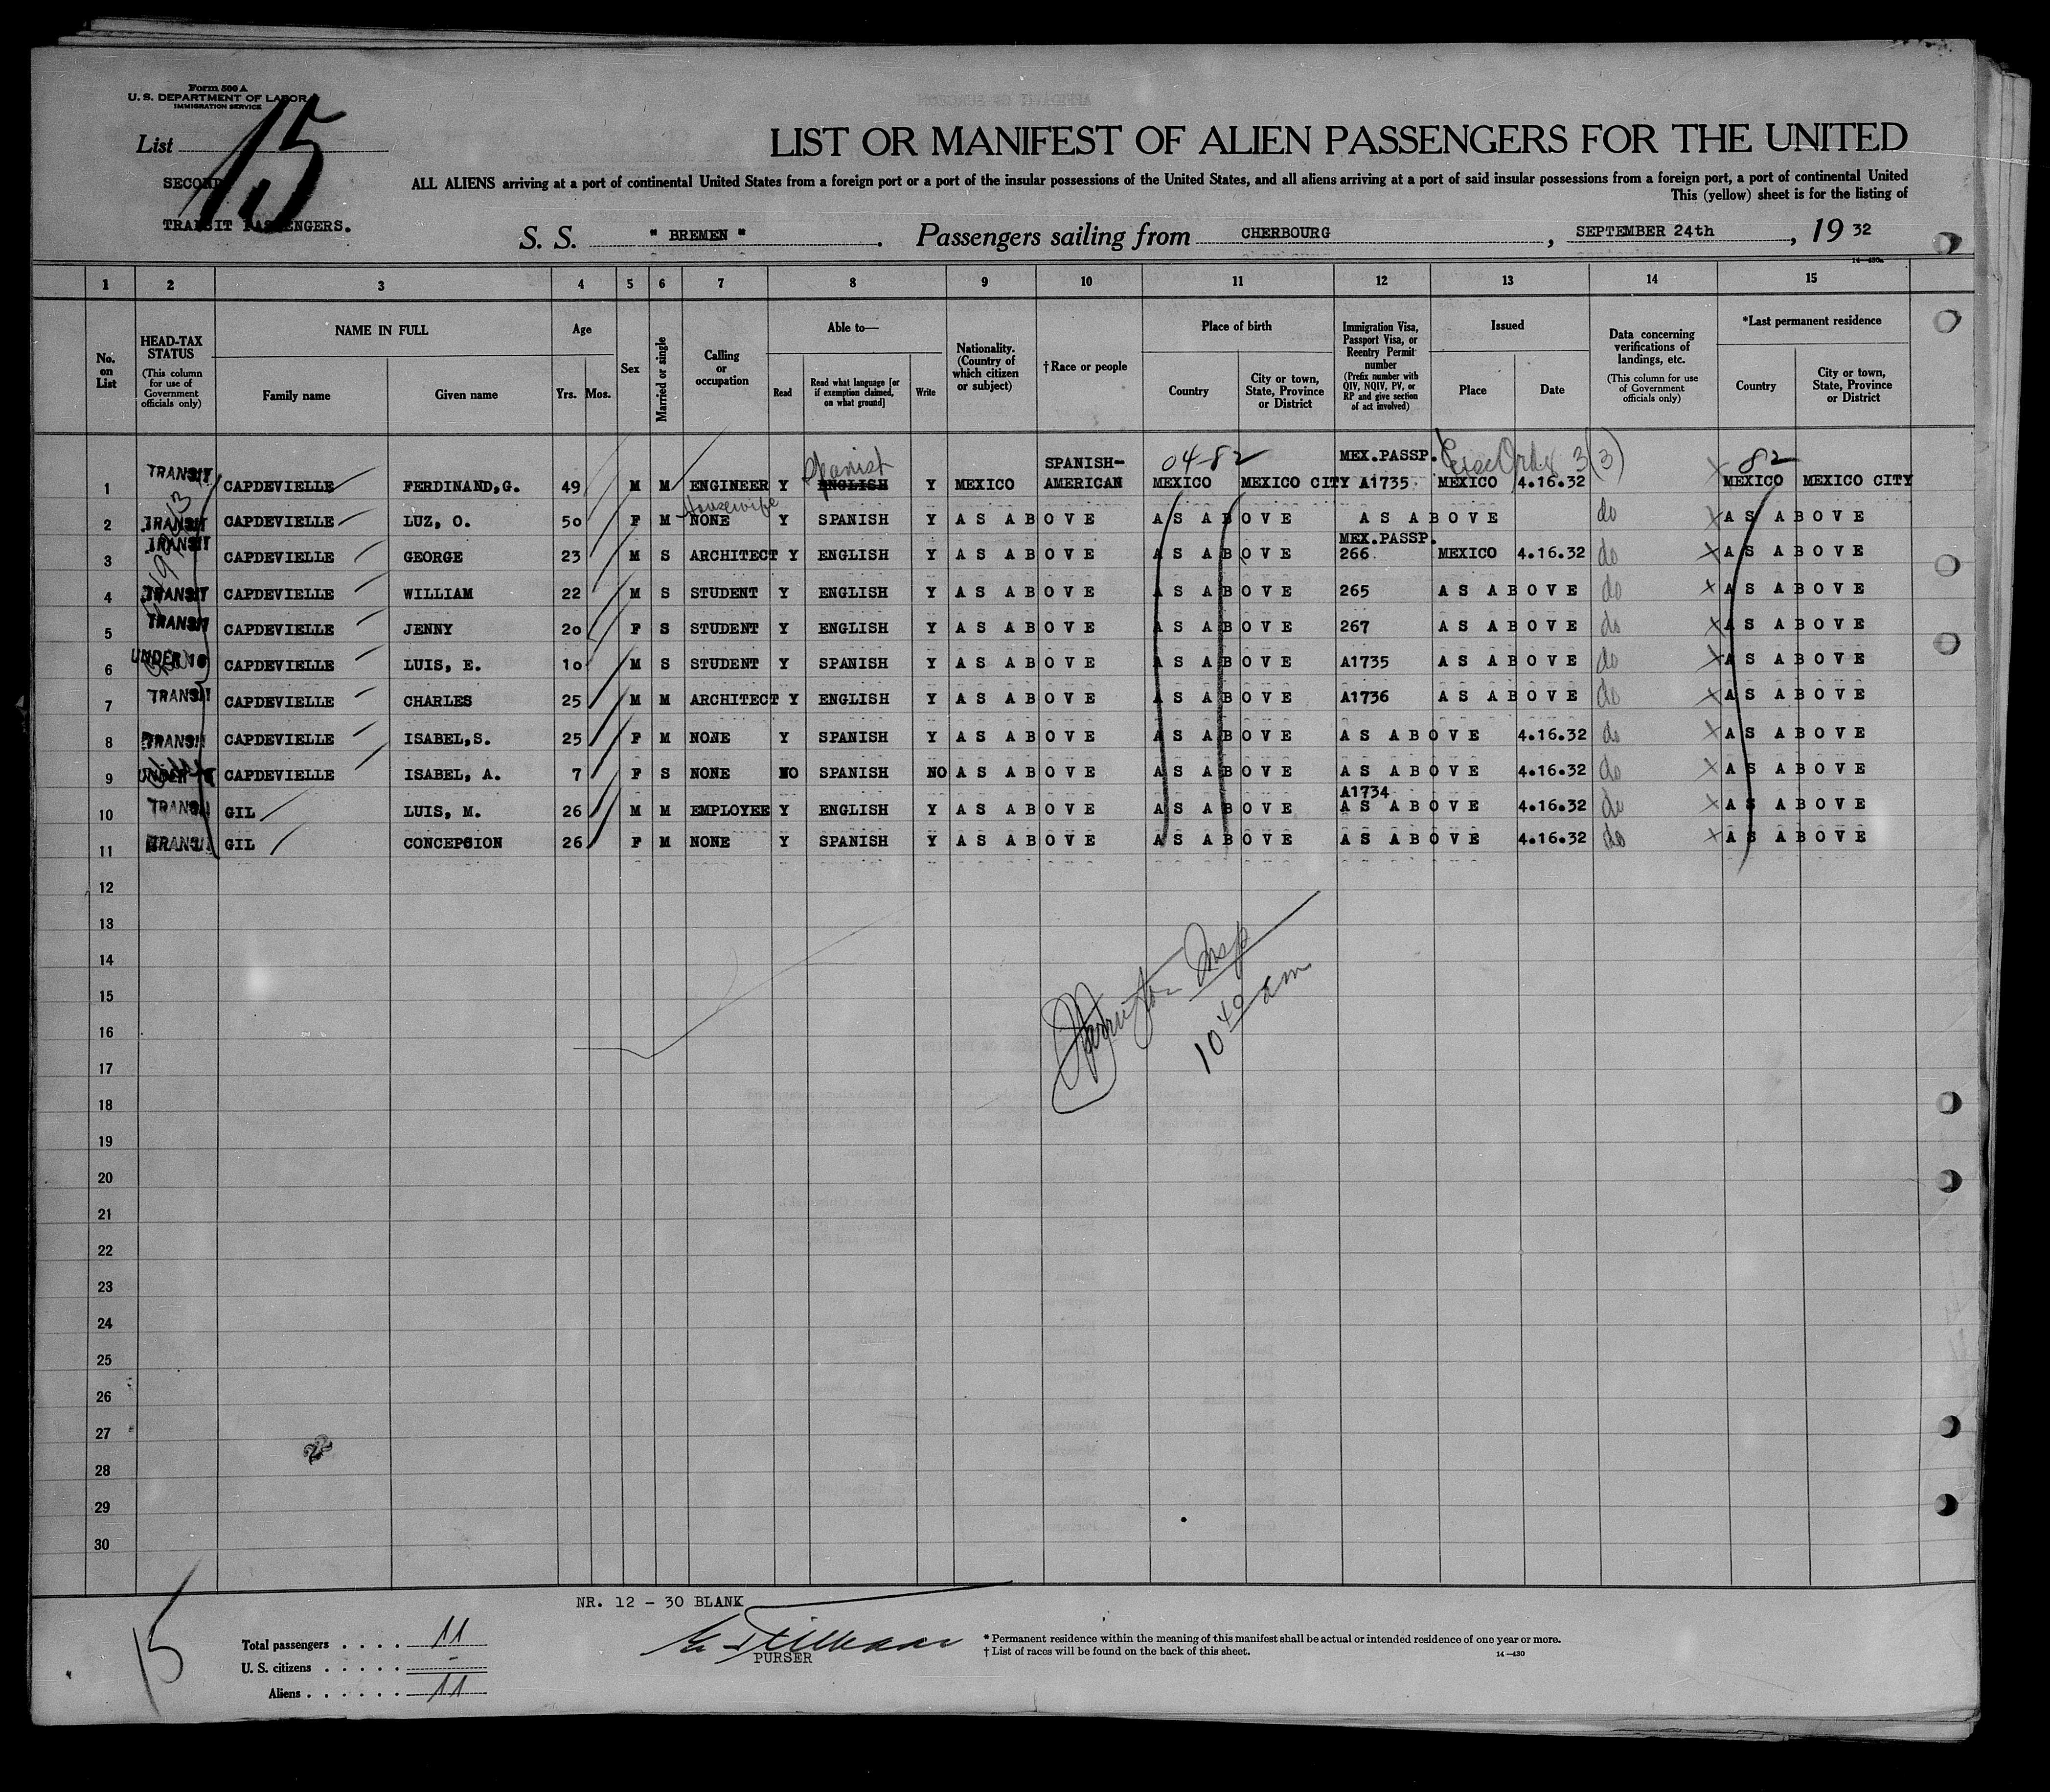 Form 500 A
U. S. DEPARTMENT OF LABOR
IMMIGRATION SERVICE
List 15
SECOND
TRANSIT PASSENGERS.
LIST OR MANIFEST OF ALIEN PASSENGERS FOR THE UNITED
ALL ALIENS arriving at a port of continental United States from a foreign port or a port of the insular possessions of the United States, and all aliens arriving at a port of said insular possessions from a foreign port, a port of continental United
This (yellow) sheet is for the listing of
S. S. " BREMEN " . Passengers sailing from CHERBOURG , SEPTEMBER 24th , 19 32
14—430a
1 2 3 4 5 6 7 8 9 10 11 12 13 14 15
No. on List
HEAD-TAX STATUS (This column for use of Government officials only)
NAME IN FULL Family name Given name
Age Yrs. Mos.
Sex
Married or single
Calling or occupation
Able to— Read Read what language [or if exemption claimed, on what ground] Write
Nationality. (Country of which citizen or subject)
†Race or people
Place of birth Country City or town, State, Province or District
Immigration Visa, Passport Visa, or Reentry Permit number (Prefix number with QIV, NQIV, PV, or RP and give section of act involved)
Issued Place Date
Data concerning verifications of landings, etc. (This column for use of Government officials only)
*Last permanent residence Country City or town, State, Province or District
Spanish SPANISH- 04-82 MEX.PASSP. 3(3) 82
1 TRANSIT CAPDEVIELLE FERDINAND,G. 49 M M ENGINEER Y ENGLISH Y MEXICO AMERICAN MEXICO MEXICO CITY A1735 MEXICO 4.16.32 X MEXICO MEXICO CITY
Housewife
2 TRANSIT CAPDEVIELLE LUZ, O. 50 F M NONE Y SPANISH Y AS ABOVE AS ABOVE AS ABOVE do X AS ABOVE
MEX.PASSP.
3 TRANSIT CAPDEVIELLE GEORGE 23 M S ARCHITECT Y ENGLISH Y AS ABOVE AS ABOVE 266 MEXICO 4.16.32 do X AS ABOVE
4 TRANSIT CAPDEVIELLE WILLIAM 22 M S STUDENT Y ENGLISH Y AS ABOVE AS ABOVE 265 AS ABOVE do X AS ABOVE
5 TRANSIT CAPDEVIELLE JENNY 20 F S STUDENT Y ENGLISH Y AS ABOVE AS ABOVE 267 AS ABOVE do X AS ABOVE
6 UNDER 16 CAPDEVIELLE LUIS, E. 10 M S STUDENT Y SPANISH Y AS ABOVE AS ABOVE A1735 AS ABOVE do X AS ABOVE
7 TRANSIT CAPDEVIELLE CHARLES 25 M M ARCHITECT Y ENGLISH Y AS ABOVE AS ABOVE A1736 AS ABOVE do X AS ABOVE
8 TRANSIT CAPDEVIELLE ISABEL,S. 25 F M NONE Y SPANISH Y AS ABOVE AS ABOVE AS ABOVE 4.16.32 do X AS ABOVE
9 UNDER 16 CAPDEVIELLE ISABEL, A. 7 F S NONE NO SPANISH NO AS ABOVE AS ABOVE AS ABOVE 4.16.32 do X AS ABOVE
A1734
10 TRANSIT GIL LUIS, M. 26 M M EMPLOYEE Y ENGLISH Y AS ABOVE AS ABOVE AS ABOVE 4.16.32 do X AS ABOVE
11 TRANSIT GIL CONCEPSION 26 F M NONE Y SPANISH Y AS ABOVE AS ABOVE AS ABOVE 4.16.32 do X AS ABOVE
12
13
14
15
16
17
18
19
20
21
22
23
24
25
26
27
28
29
30
Insp
10 40 am
NR. 12 - 30 BLANK
15
Total passengers . . . . 11
U. S. citizens . . . . . -
Aliens . . . . . . 11
PURSER
* Permanent residence within the meaning of this manifest shall be actual or intended residence of one year or more.
† List of races will be found on the back of this sheet.
14—430